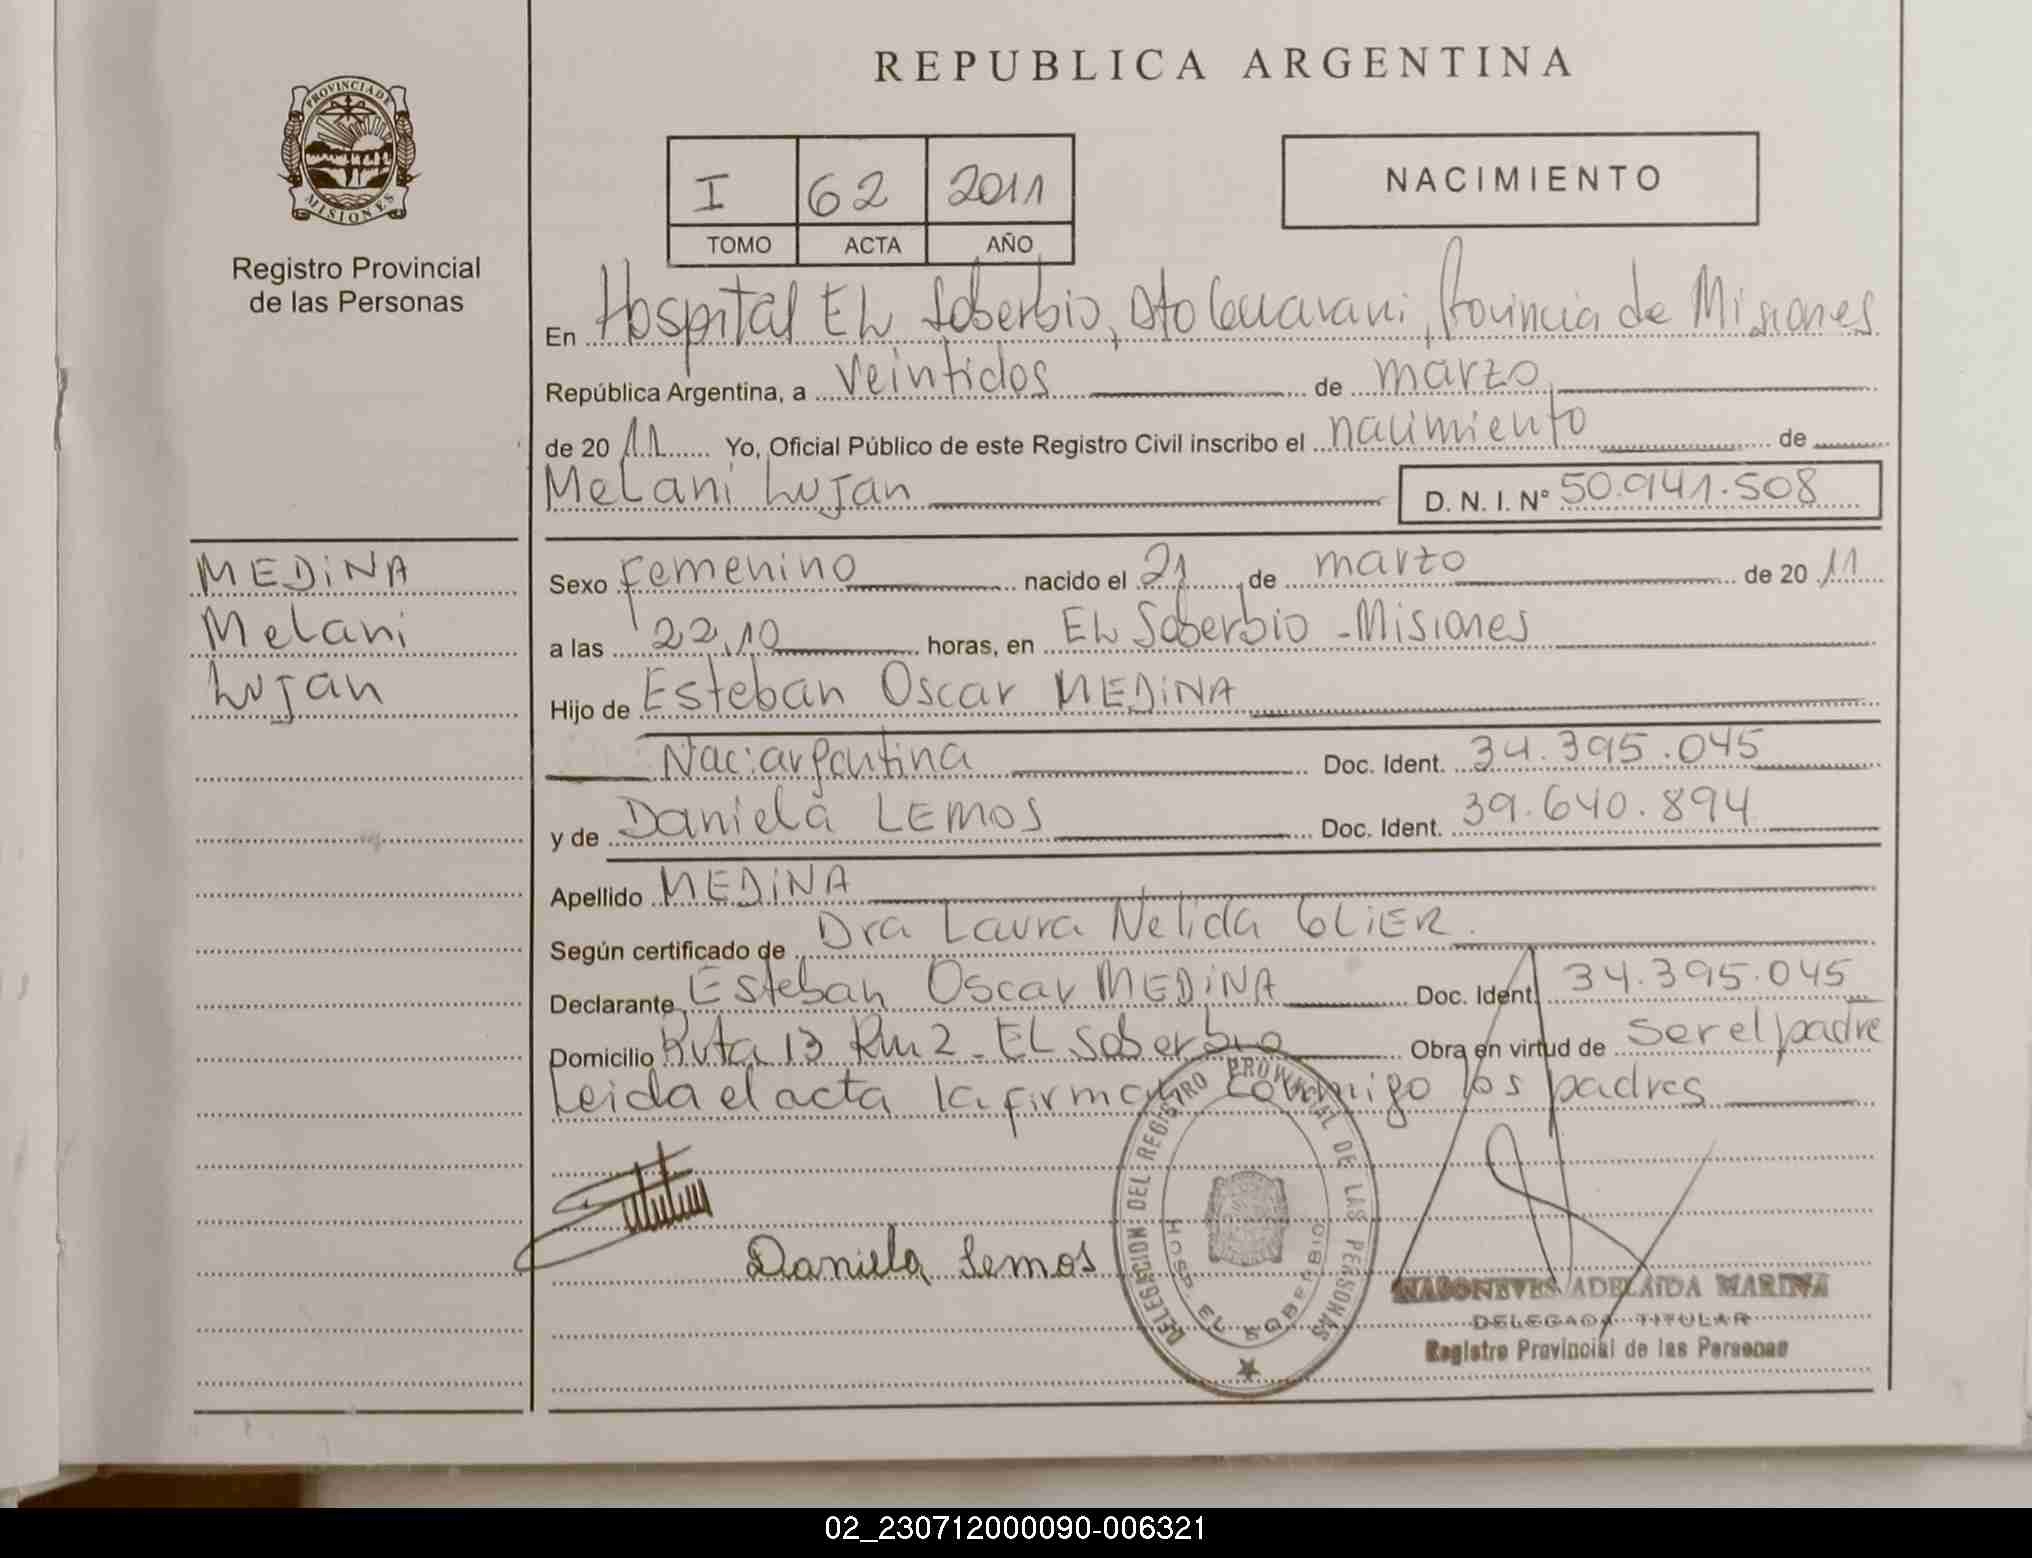 REPUBLICA ARGENTINA
PROVINCIA DE
MISIONES
Registro Provincial
de las Personas
I 62 2011
TOMO ACTA AÑO
NACIMIENTO
En Hospital EL Soberbio, Dto Guarani, Provincia de Misiones
República Argentina, a veintidos de marzo
de 20 11 Yo, Oficial Público de este Registro Civil inscribo el nacimiento de
Melani Lujan D. N. I. Nº 50.941.508
MEDiNA
Melani
Lujan
Sexo femenino nacido el 21 de marzo de 20 11
a las 22,10 horas, en EL Soberbio - Misiones
Hijo de Esteban Oscar MEDiNA
Nac: argentina Doc. Ident. 34.395.045
y de Daniela LEMOS Doc. Ident. 39.640.894
Apellido MEDiNA
Según certificado de Dra Laura Nelida GLiER.
Declarante Esteban Oscar MEDiNA Doc. Ident. 34.395.045
Domicilio Ruta 13 Km 2 - EL Soberbio Obra en virtud de ser el padre
Leida el acta la firman conmigo los padres
Daniela Lemos
DELEGACION DEL REGISTRO PROVINCIAL DE LAS PERSONAS
HOSP. EL SOBERBIO
ADELAIDA MARINA
DELEGADA TITULAR
Registro Provincial de las Personas
02_230712000090-006321